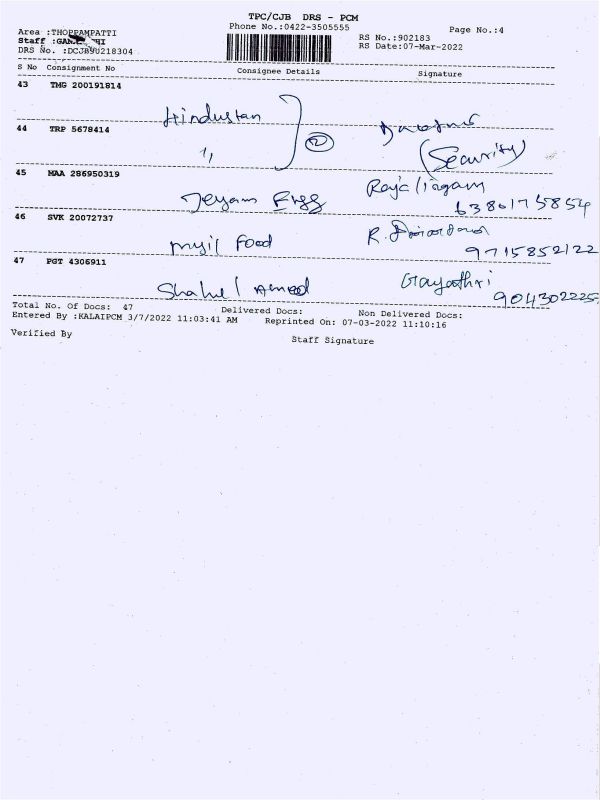 TPC/CJB DRS - PCM
Phone No.:0422-3505555
Page No.:4
Area :THOPPAMPATTI
Staff :
DRS No. :DCJB90218304
RS No.:902183
RS Date:07-Mar-2022
S No Consignment No Consignee Details Signature
43 TMG 200191814
Hindustan
44 TRP 5678414
" 2
(Security)
45 MAA 286950319
Jeyam Engg Rajalingam
6380175854
46 SVK 20072737
Mysil Food R.
9715852122
47 PGT 4306911
Shahul Ahmed Gayathri
904302225
Total No. Of Docs: 47 Delivered Docs: Non Delivered Docs:
Entered By :KALAIPCM 3/7/2022 11:03:41 AM Reprinted On: 07-03-2022 11:10:16
Verified By Staff Signature